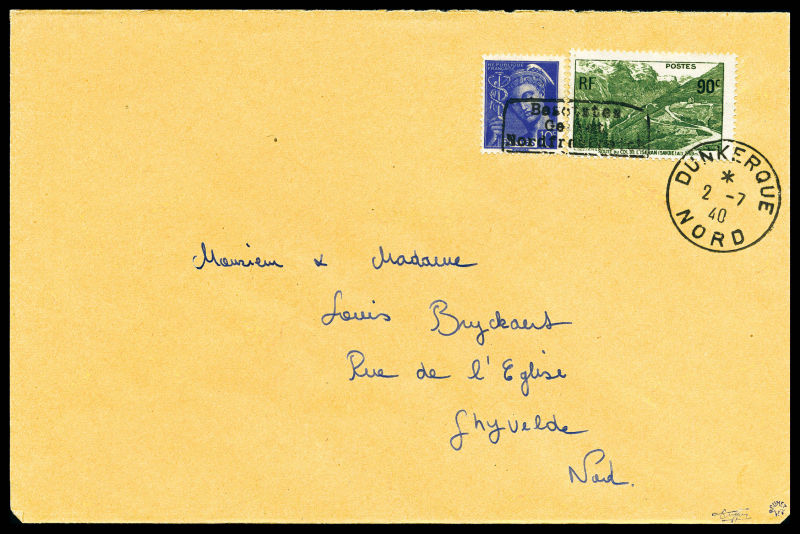 RÉPUBLIQUE
FRANÇAISE
10c
POSTES
RF 90c
COL DE L'ISERAN (SAVOIE)
Besetztes
Ge
Nordfr
DUNKERQUE
*
2 -7
40
NORD
Monsieur & Madame
Louis Bryckaert
Rue de l'Eglise
Ghyvelde
Nord.